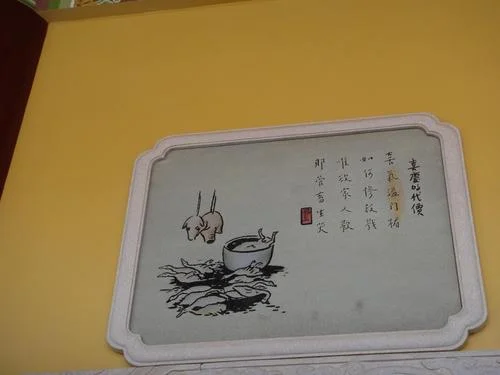 喜慶的代價
喜氣溢門楣
如何慘殺戮
惟欲家人歡
那管畜生哭